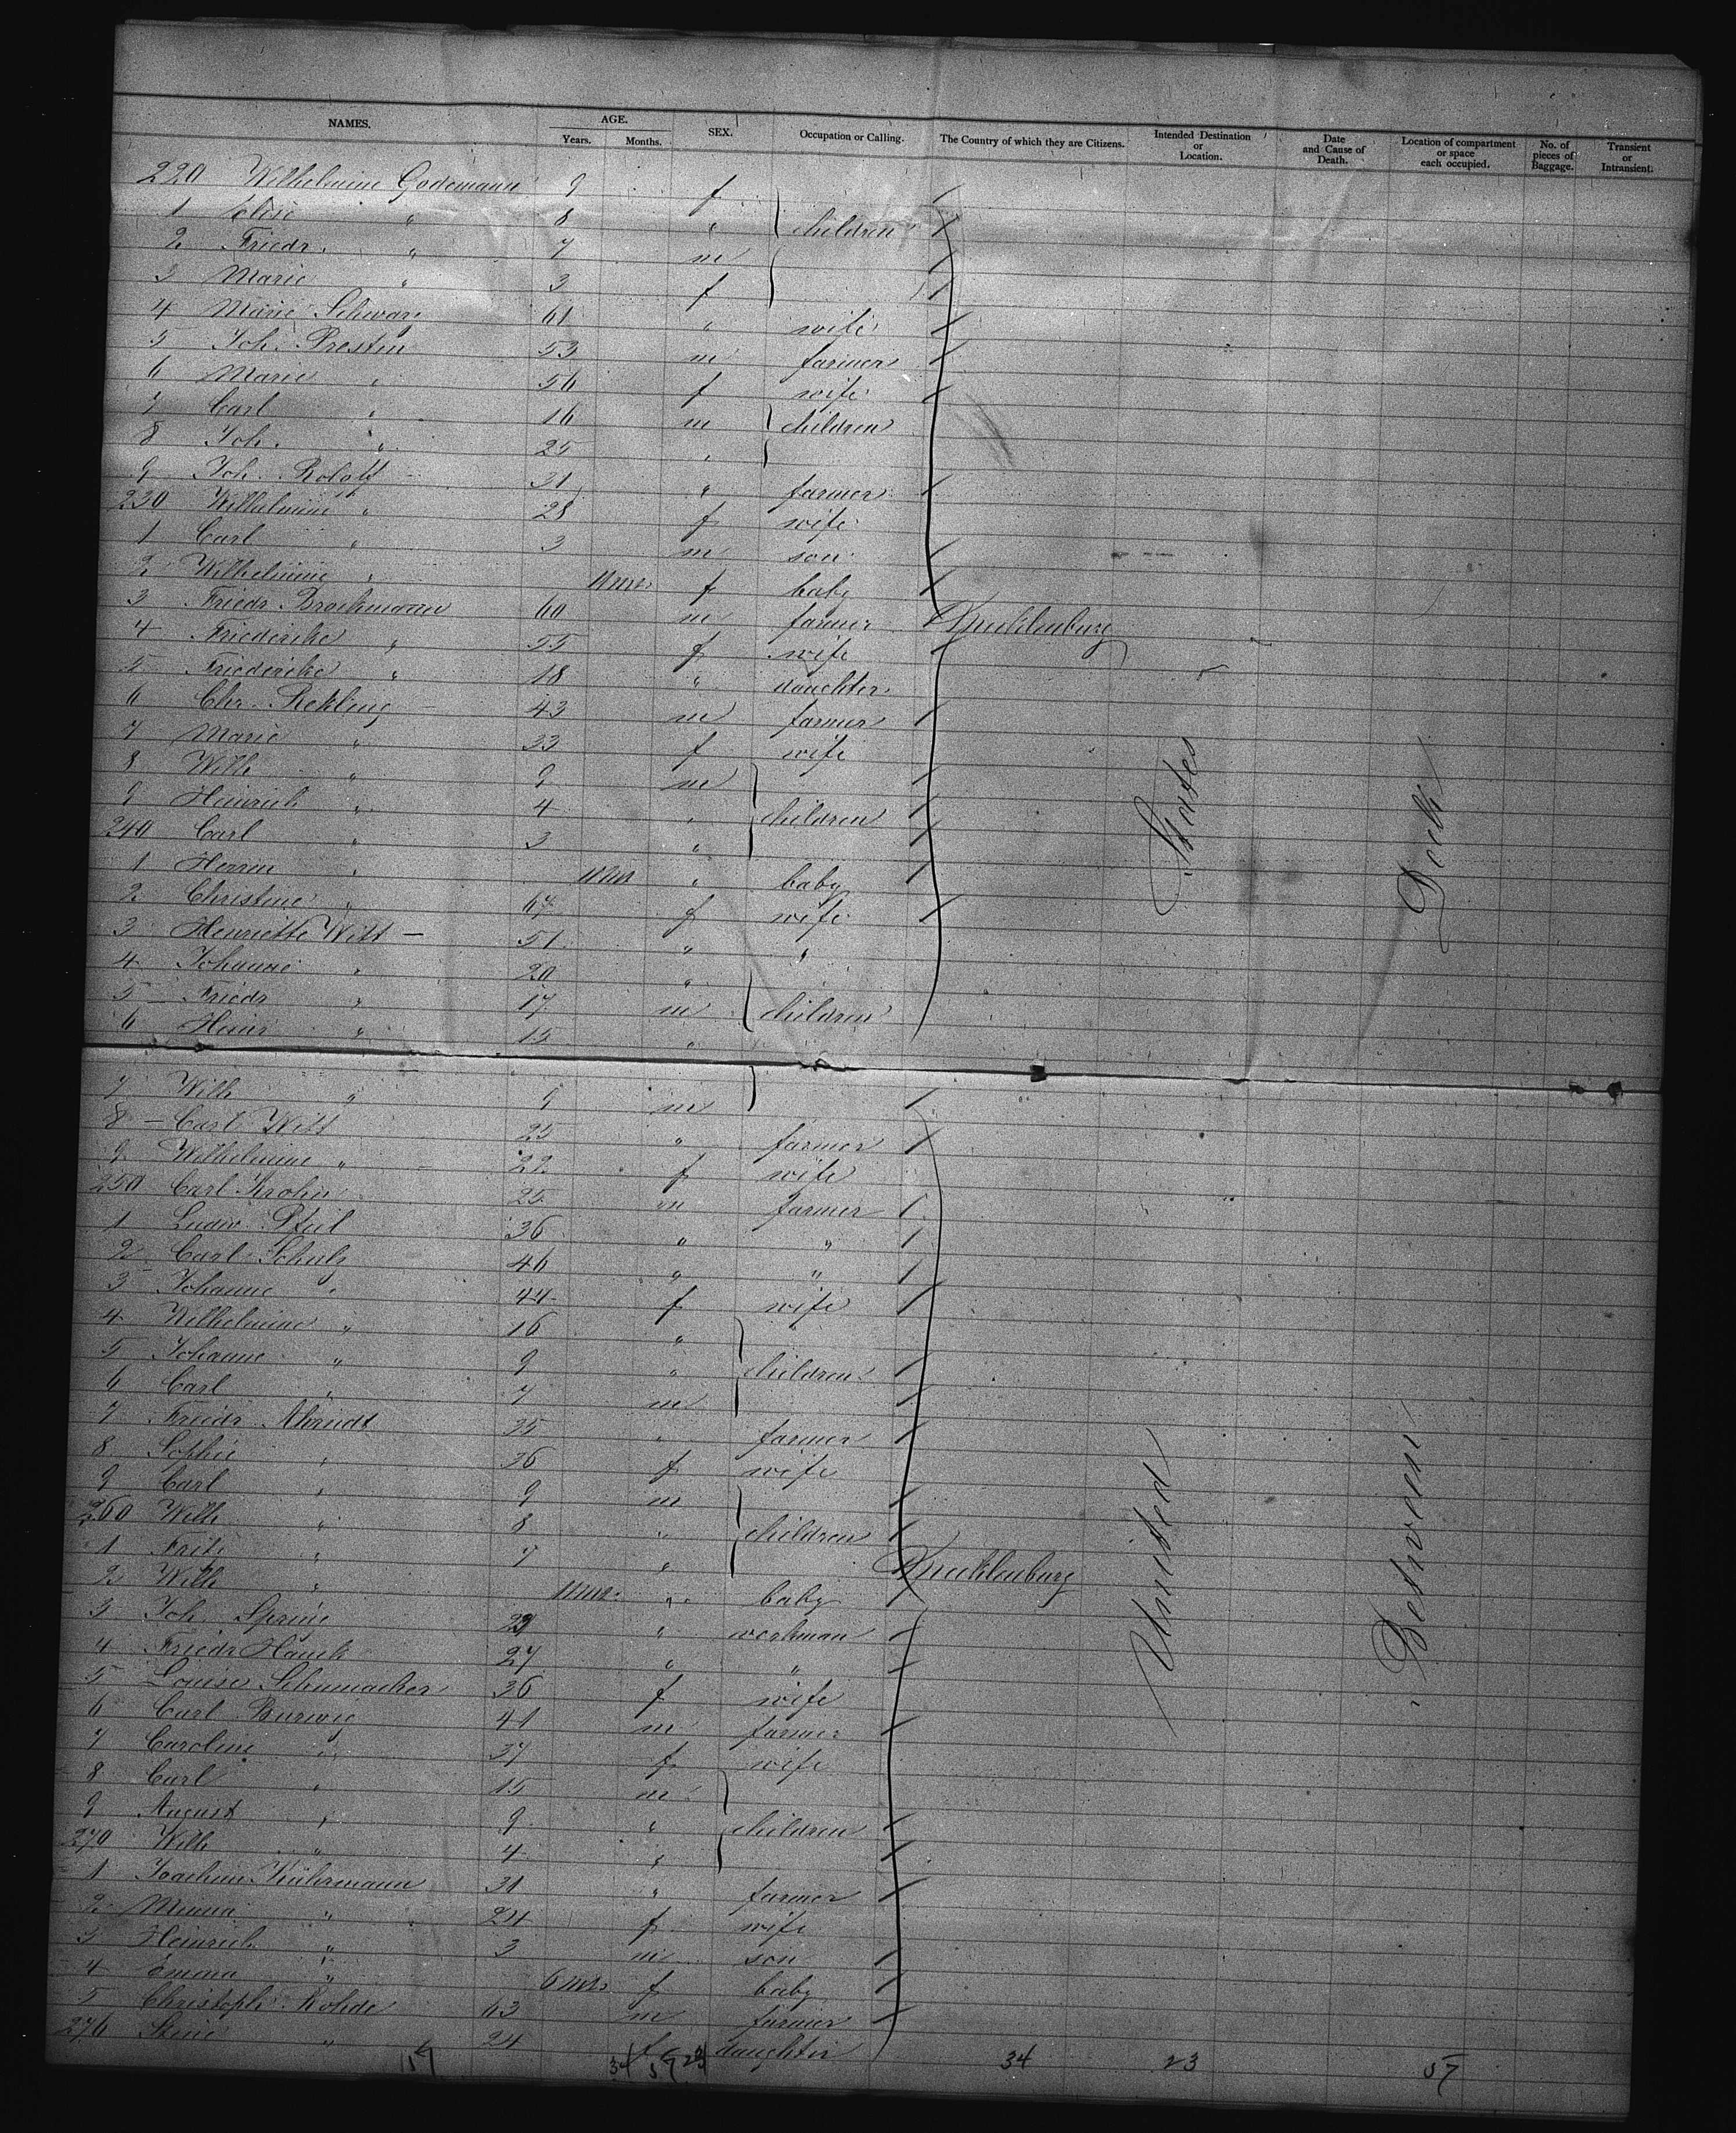 NAMES. AGE. Years. Months. SEX. Occupation or Calling. The Country of which they are Citizens. Intended Destination or Location. Date and Cause of Death. Location of compartment or space each occupied. No. of pieces of Baggage. Transient or Intransient.
220 Wilhelmine Godemann 9 f
1 Elise " 8 " children
2 Friedr. " 7 m
3 Marie " 3 f
4 Marie Schwarz 61 " wife
5 Joh. Prestin 53 m farmer
6 Marie " 56 f wife
7 Carl " 16 m children
8 Joh. " 25 "
9 Joh. Roloff 31 " farmer
230 Wilhelmine " 28 f wife
1 Carl " 3 m son
2 Wilhelmine " 11 ms. f baby
3 Friedr. Brockmann 60 m farmer Mecklenburg
4 Friederike " 55 f wife
5 Friederike " 18 " daughter
6 Chr. Rekling 43 m farmer
7 Marie " 33 f wife
8 Wilh " 9 m
9 Heinrich " 4 " children
240 Carl " 3 "
1 Herrm " 11 ms " baby
2 Christine " 67 f wife
3 Henriette Witt 51 " "
4 Johanne " 20 "
5 Friedr " 17 m children
6 Heinr " 15 "
7 Wilh " 9 m
8 Carl Witt 25 " farmer
9 Wilhelmine " 22 f wife
250 Carl Krohn 25 m farmer
1 Ludw. Pful 36 " "
2 Carl Schulz 46 " "
3 Johanne " 44 f wife
4 Wilhelmine " 16 "
5 Johanne " 9 " children
6 Carl " 7 m
7 Friedr Ahrendt 35 " farmer
8 Sophie " 36 f wife
9 Carl " 9 m
260 Wilh " 8 " children
1 Fritz " 7 " Mecklenburg
2 Wilh " 11 ms. " baby
3 Joh Spring " workman
4 Friedr Hauck 27 " "
5 Louise Schumacher 36 f wife
6 Carl Burwig 41 m farmer
7 Caroline " 37 f wife
8 Carl " 15 m
9 August " 9 " children
270 Wilh " 4 "
1 Joachim Kührmann 31 " farmer
2 Minna " 24 f wife
3 Heinrich " 3 m son
4 Emma " 6 ms f baby
5 Christoph Rohde 63 m farmer
276 Stine " 24 f daughter
57 34 57 23 34 23 57
United States
Between Deck